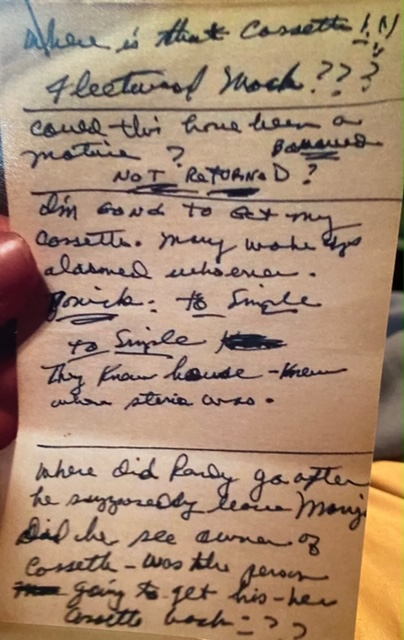 Where is that Cassette!!!
Fleetwood Mack???
could this have been a
motive? Borrowed
NOT RETURNED?
I'm going to get my
Cassette. Mary wake ups
alarmed whoever.
Panick: to Simple
to Simple
They knew house - Knew
where sterio was.
Where did Randy go after
he supposedly leave Mary
Did he see owner of
Cassette - was the person
going to get his - her
Cassette back = ??